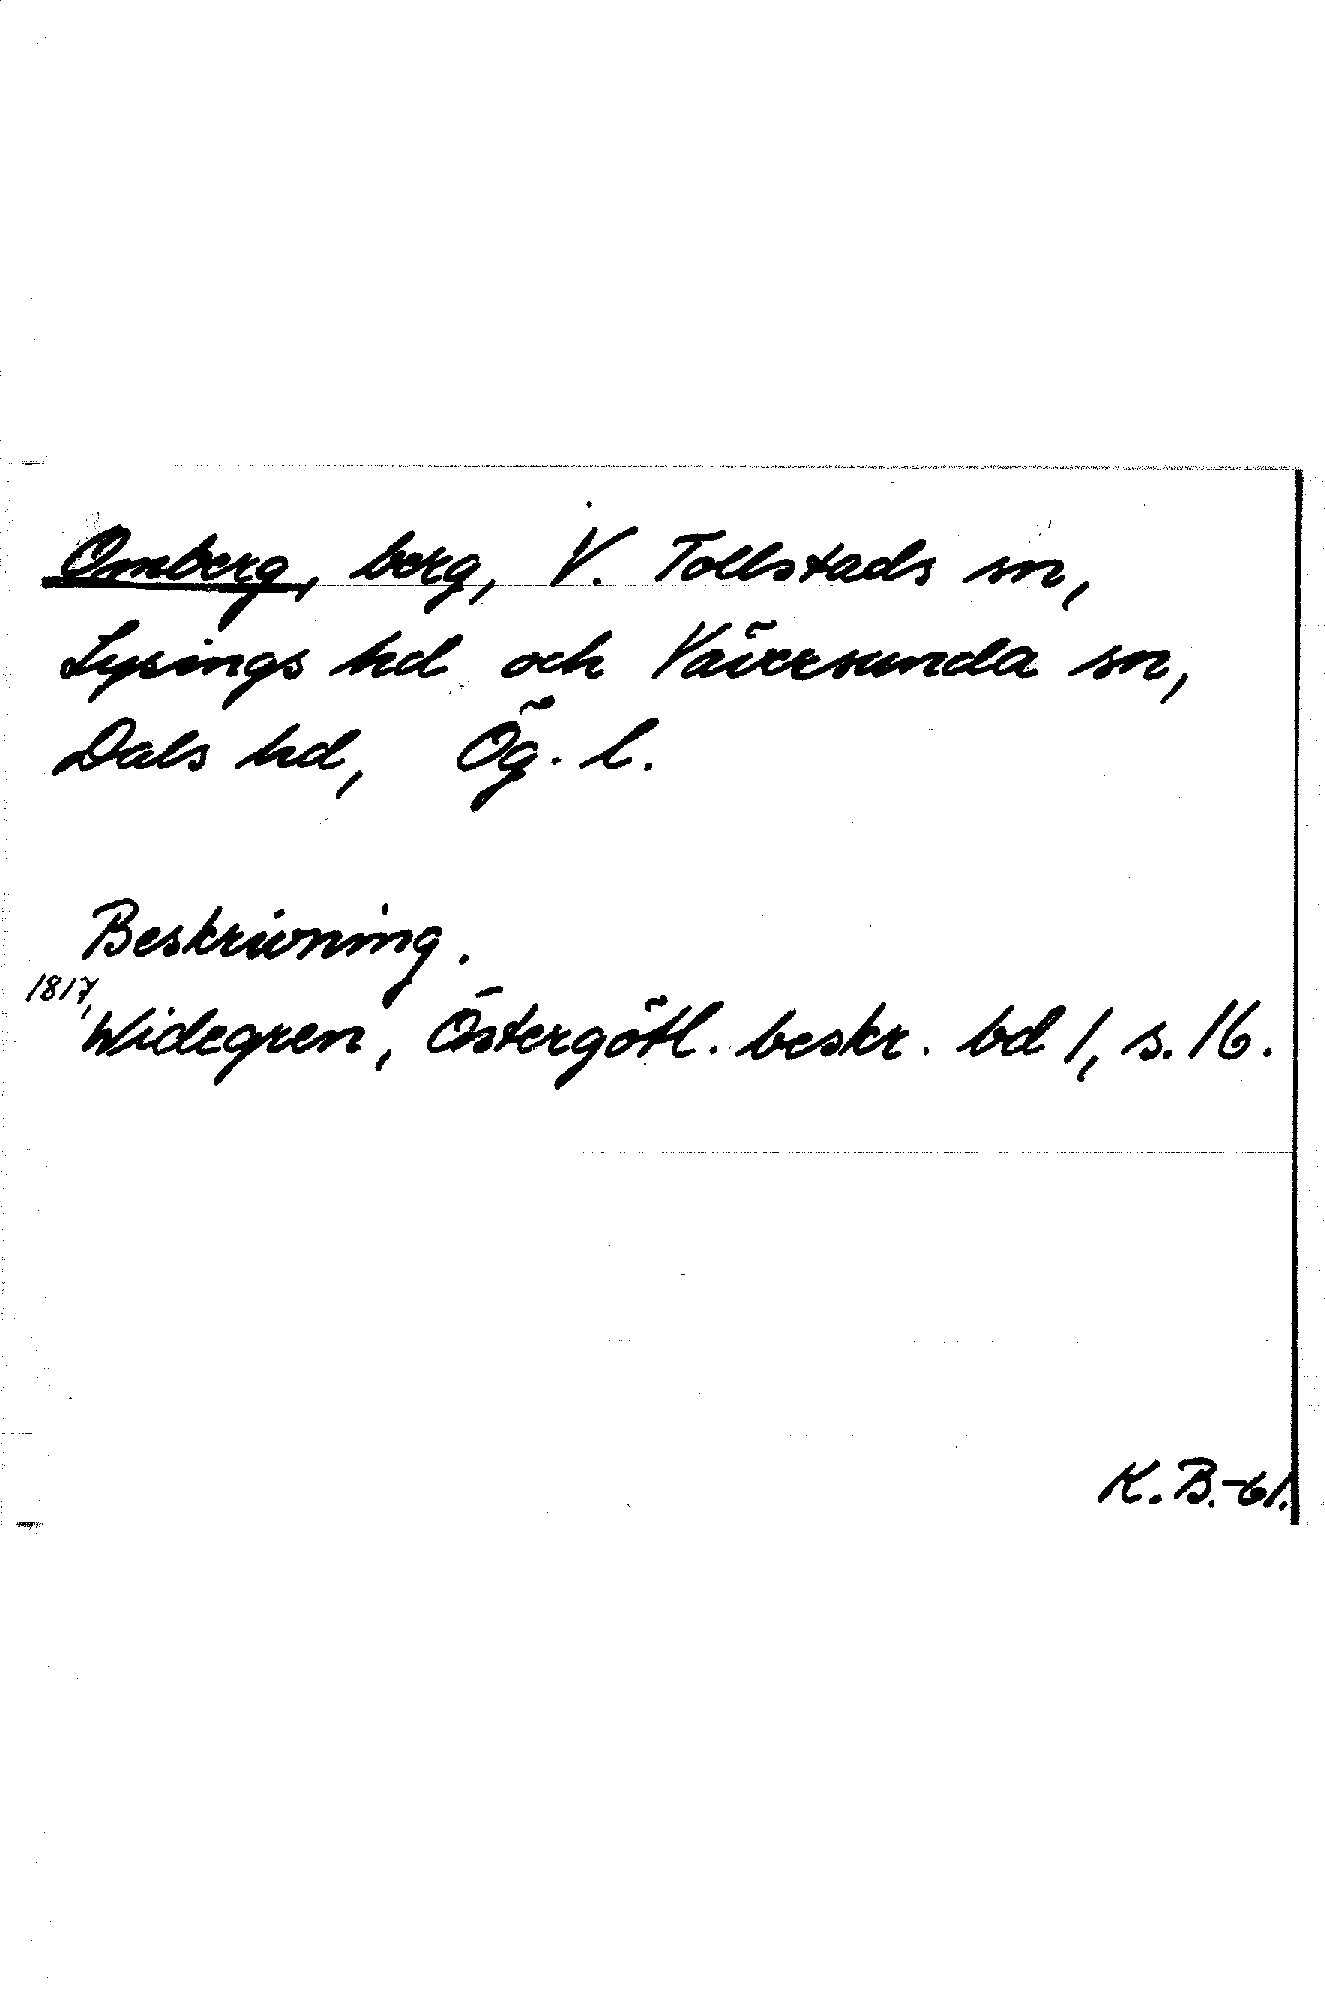 Omberg, berg, V. Tollstads sn,
Lysings hd och Väversunda sn,
Dals hd, Ög. l.
Beskrivning.
1817
Widegren, Östergötl. beskr. bd 1, s. 16.
K.B.-61.